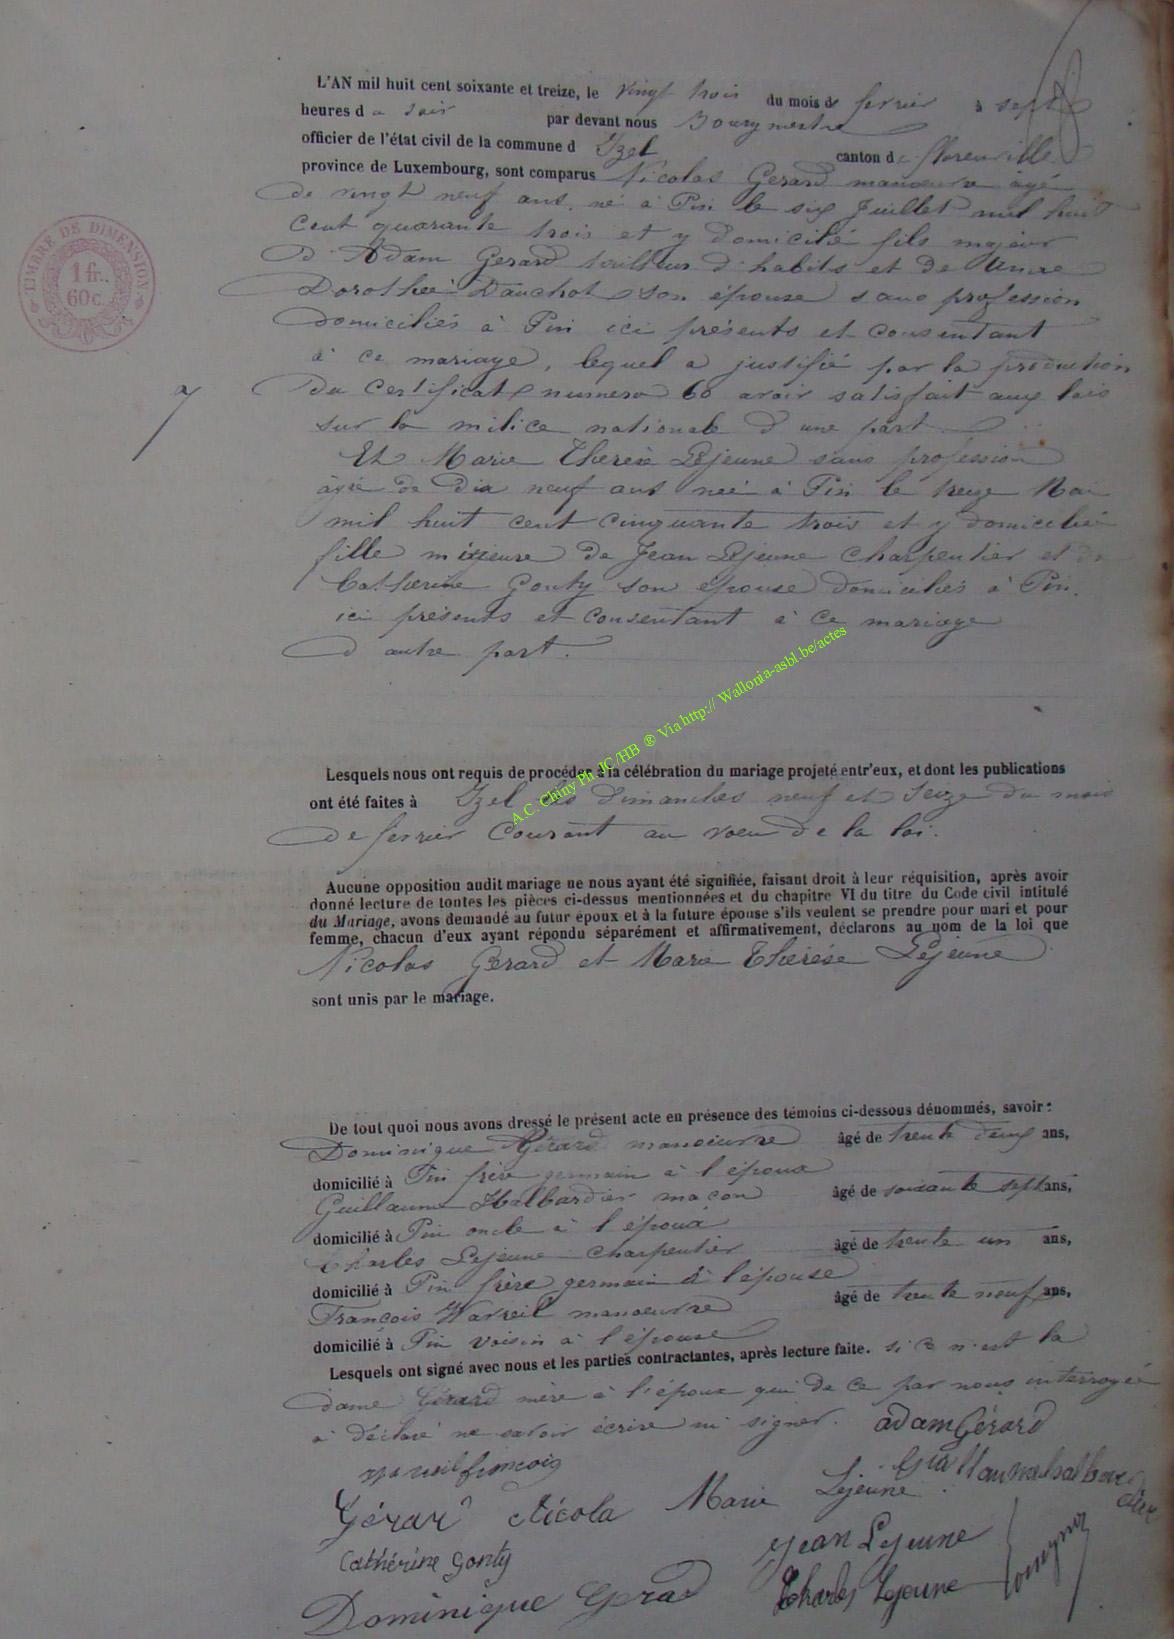 L'AN mil huit cent soixante et treize, le vingt trois du mois de fevrier à sept
heures d u soir par devant nous Bourgmestre
officier de l'état civil de la commune d Izel canton de florenville
province de Luxembourg, sont comparus Nicolas Gerard manoeuvre âgé
de vingt neuf ans, né à Pin le six Juillet mil huit
cent quarante trois et y domicilié fils majeur
d'Adam Gerard tailleur d'habits et de
Dorothée Dauchot son épouse sans profession
domiciliés à Pin ici présents et consentant
à ce mariage, lequel a justifié par la production
du certificat numero 60 avoir satisfait aux lois
sur la milice nationale d'une part.
7
TIMBRE DE DIMENSION
1 fr.
60 c.
Et Marie Thérèse Lejeune sans profession
âgée de dix neuf ans née à Pin le treize Mai
mil huit cent cinquante trois et y domiciliée
fille mineure de Jean Lejeune charpentier et de
Catherine Gonty son épouse domiciliés à Pin.
ici présents et consentant à ce mariage
d'autre part.
A.C. Chiny Ph. JC/HB ® Via http:// Wallonia-asbl.be/actes
Lesquels nous ont requis de procéder à la célébration du mariage projeté entr'eux, et dont les publications
ont été faites à Izel les dimanches neuf et seize du mois
de fevrier courant au voeu de la loi.
Aucune opposition audit mariage ne nous ayant été signifiée, faisant droit à leur réquisition, après avoir
donné lecture de toutes les pièces ci-dessus mentionnées et du chapitre VI du titre du Code civil intitulé
du Mariage, avons demandé au futur époux et à la future épouse s'ils veulent se prendre pour mari et pour
femme, chacun d'eux ayant répondu séparément et affirmativement, déclarons au nom de la loi que
Nicolas Gerard et Marie Thérèse Lejeune
sont unis par le mariage.
De tout quoi nous avons dressé le présent acte en présence des témoins ci-dessous dénommés, savoir :
Dominique Gérard manoeuvre âgé de trente deux ans,
domicilié à Pin frère germain à l'époux
Guillaume Halbardier maçon âgé de soixante sept ans,
domicilié à Pin oncle à l'époux
Charles Lejeune charpentier âgé de trente un ans,
domicilié à Pin frère germain à l'épouse
François manoeuvre âgé de trente neuf ans,
domicilié à Pin voisin à l'épouse
Lesquels ont signé avec nous et les parties contractantes, après lecture faite. si ce n'est la
dame Gérard mère à l'époux qui de ce par nous interrogée
à déclaré ne savoir écrire ni signer. adam Gérard
françois
Gérard Nicola Marie Lejeune
Cathérine Gonty Jean Lejeune
Dominique Gerard Charles Lejeune